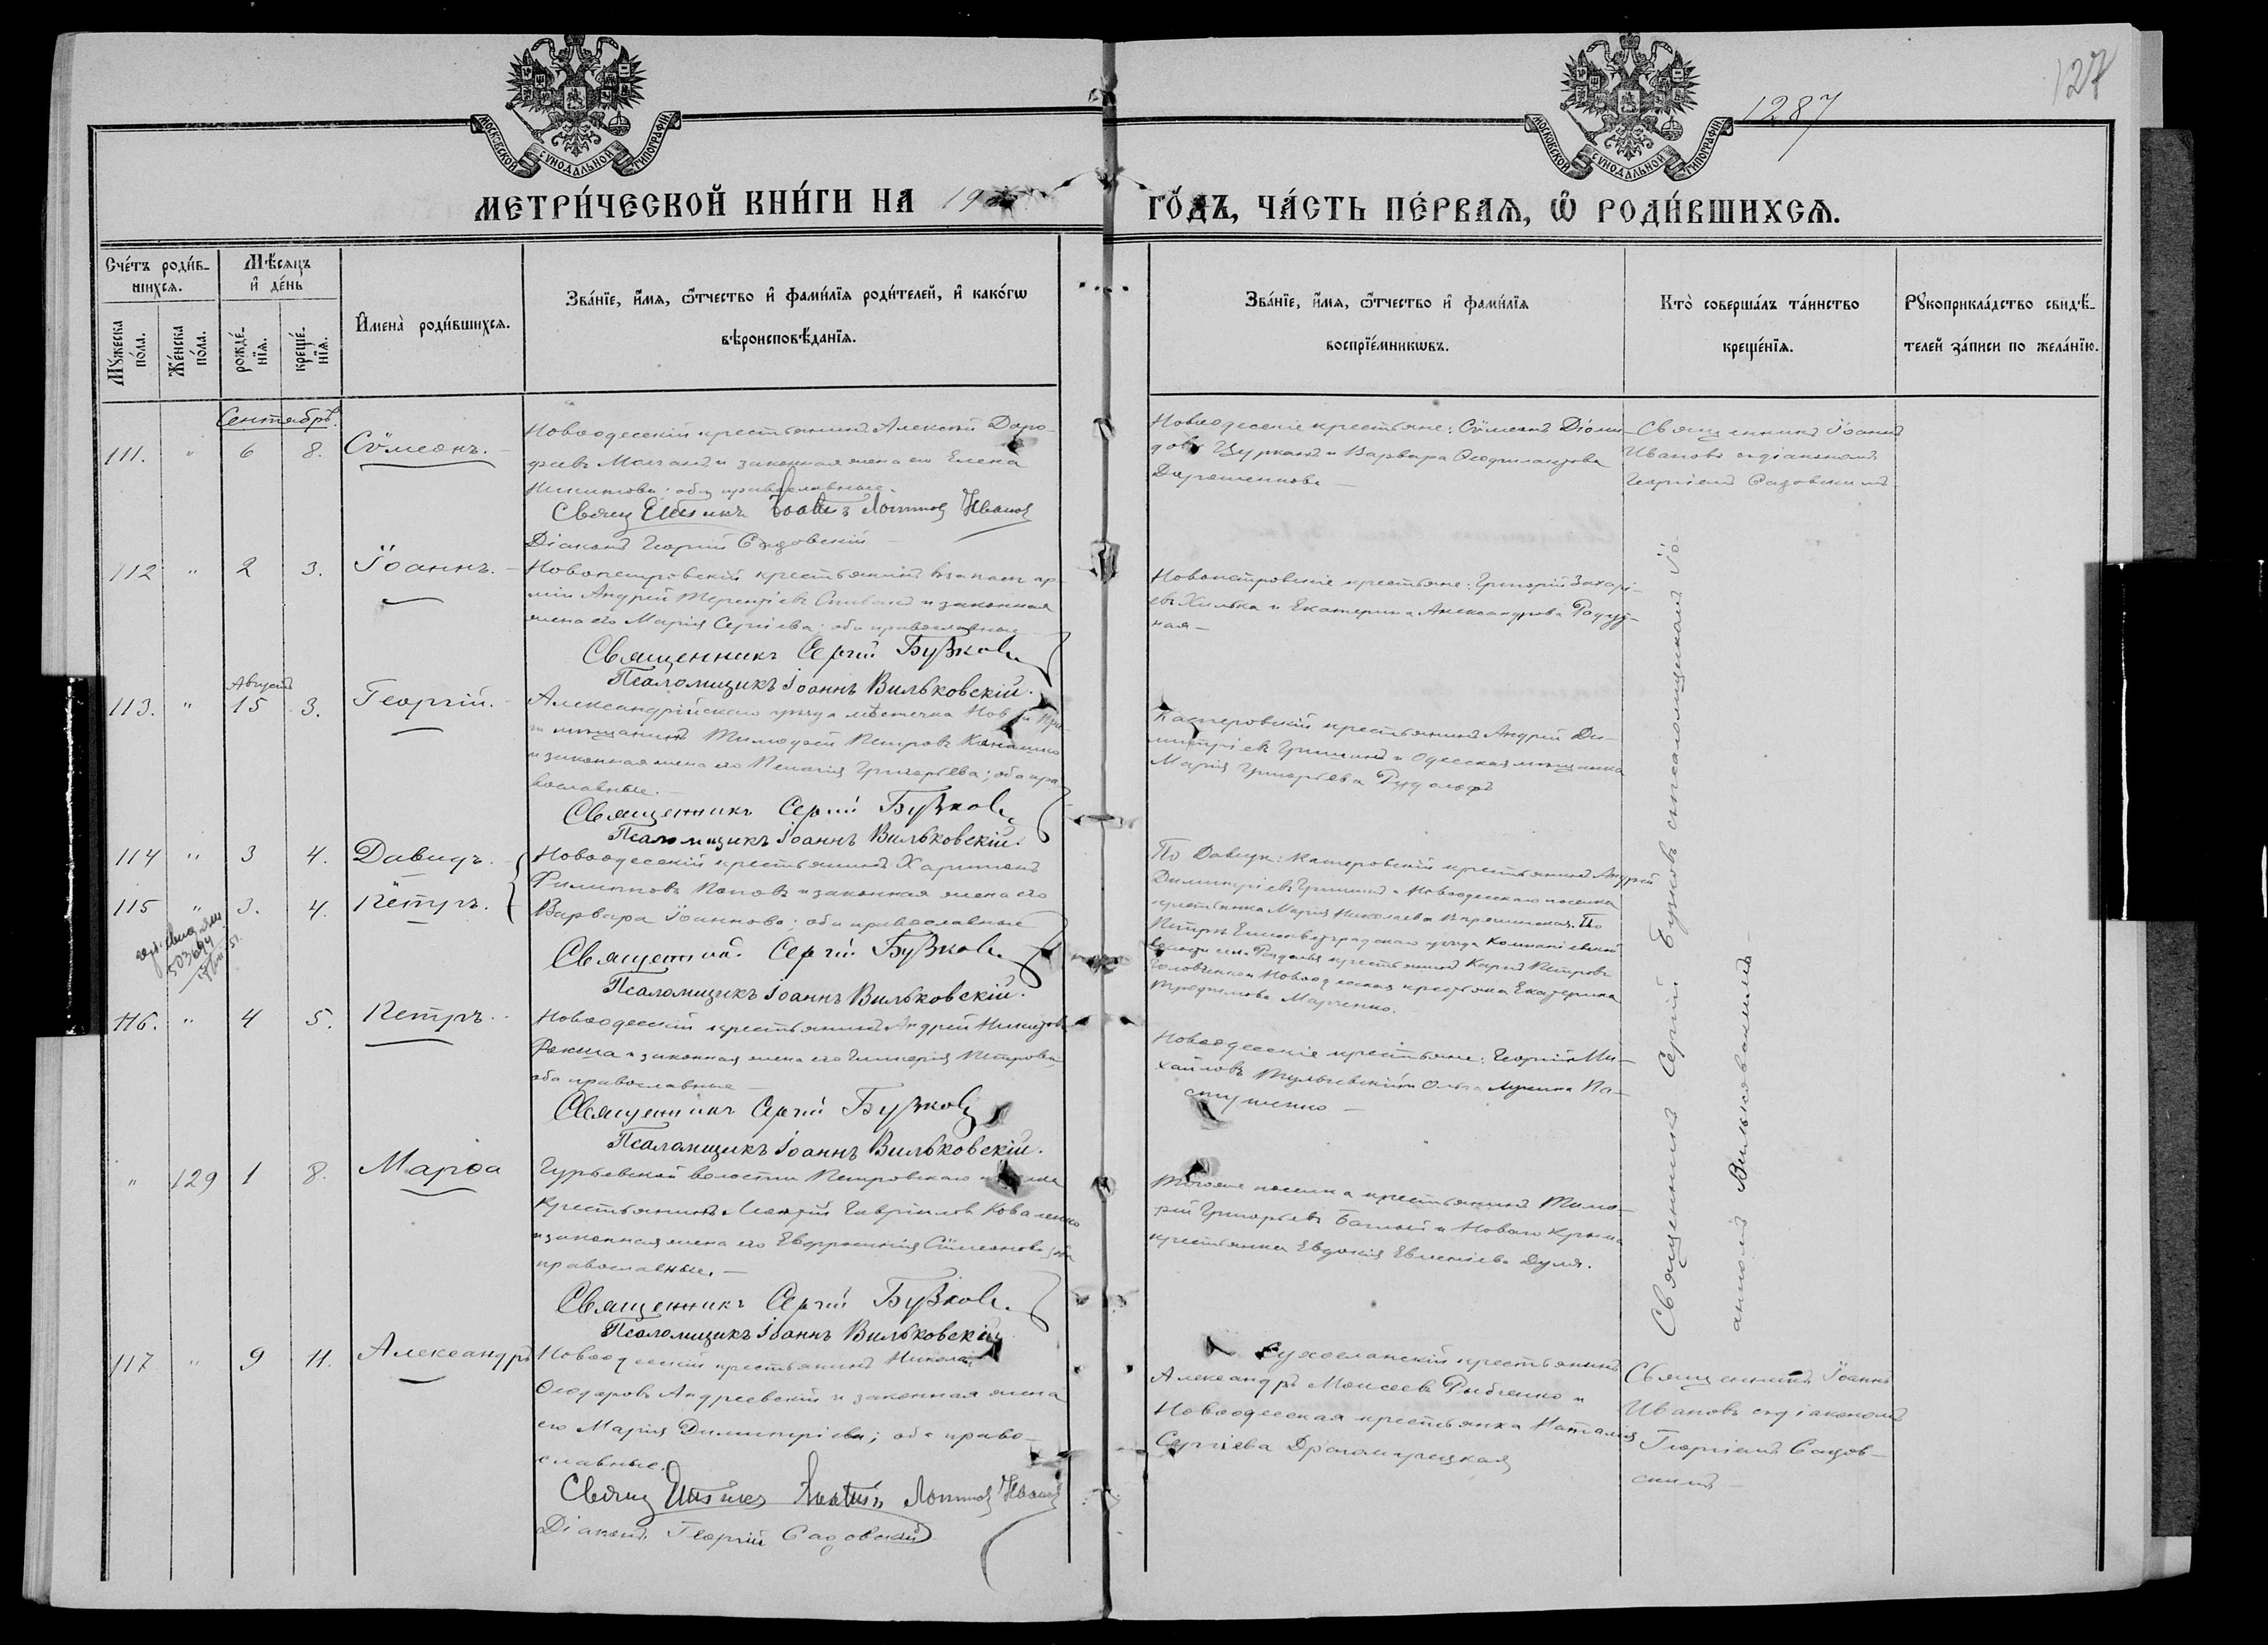 127
1287
МОСКОВСКОЙ СѴНОДАЛЬНОЙ ТИПОГРАФІИ
МОСКОВСКОЙ СѴНОДАЛЬНОЙ ТИПОГРАФІИ
МЕТРИ́ЧЕСКОЙ КНИ́ГИ НА 19
ГО́ДЪ, ЧА́СТЬ ПЕ́РВАѦ, Ѿ РОДИ́ВШИХСѦ.
Сче́тъ роди́в-
шихсѧ.
Мꙋ́жеска по́ла.
Же́нска по́ла.
Мѣ́сѧцъ
и҆ де́нь
рожде́-нїѧ.
креще́-нїѧ.
И҆мена̀ роди́вшихсѧ.
Зва́нїе, и҆́мѧ, ѻ҆́тчество и҆ фами́лїѧ роди́телей, и҆ како́гѡ
вѣроисповѣ́данїѧ.
Зва́нїе, и҆́мѧ, ѻ҆́тчество и҆ фами́лїѧ
воспрїе́мникѡвъ.
Кто̀ соверша́лъ та́инство
креще́нїѧ.
Рꙋкоприкла́дство свидѣ́-
телей за́писи по жела́нїю.
Сентябрь.
111. " 6 8. Сѵмеонъ.
Новоодесскій крестьянинъ Алексѣй Доро-
феевъ Молчанъ и законная жена его Елена
Никитова; оба православные.
Священникъ Іоаннъ Логиновъ Ивановъ
Діаконъ Георгій Садовскій
Новоодесскіе крестьяне: Сѵмеонъ Діоми-
довъ Цурканъ и Варвара Ѳеофилактова
Дорошенкова
Священникъ Іоаннъ
Ивановъ съ діакономъ
Георгіемъ Садовскимъ
112 " 2 3. Іоаннъ.
Новопетровскій крестьянинъ запасн. ар-
міи Андрей Терентіевъ Спивакъ и законная
жена его Марія Сергіева; оба православные
Священникъ Сергій Бузковъ
Псаломщикъ Іоаннъ Вильковскій.
Новопетровскіе крестьяне: Григорій Захарі-
евъ Хилька и Екатерина Александрова
ная
Августъ
113. " 15 3. Георгій.
Александрійскаго уѣзда мѣстечка Новой Пра-
ги мѣщанинъ Тимофей Петровъ
и законная жена его Пелагія Григорьева; оба пра-
вославные.
Священникъ Сергій Бузковъ
Псаломщикъ Іоаннъ Вильковскій.
Касперовскій крестьянинъ Андрей Ди-
митріевъ Гришинъ и Одесская мѣщанка
Марія Григорьева Рудольфъ
114 " 3 4. Давидъ.
115 " 3. 4. Петръ.
503694
Новоодесскій крестьянинъ Харитонъ
Филипповъ Поповъ и законная жена его
Варвара Іоаннова; оба православные
Священникъ Сергій Бузковъ
Псаломщикъ Іоаннъ Вильковскій.
По Давиду: Касперовскій крестьянинъ Андрей
Димитріевъ Гришинъ и Новоодесскаго поселка
крестьянка Марія Николаева По
Петру Елисаветградскаго уѣзда Компаніевской
волости села крестьянинъ Карпъ Петровъ
Головченко и Новоодесская крестьянка Екатерина
Трофимова Марченко.
116. " 4 5. Петръ.
Новоодесскій крестьянинъ Андрей Никитовъ
и законная жена его Гликерія Петрова;
оба православные
Священникъ Сергій Бузковъ
Псаломщикъ Іоаннъ Вильковскій.
Новоодесскіе крестьяне: Георгій Ми-
хайловъ Тульчевскій и Ольга Лукина Па-
стушенко
" 129 1 8. Марѳа
Гурьевской волости Петровскаго поселка
крестьянинъ Гавріиловъ Коваленко
и законная жена его Евфросинія Сѵмеонова; оба
православные.
Священникъ Сергій Бузковъ
Псаломщикъ Іоаннъ Вильковскій
Того же поселка крестьянинъ Тимо-
фей Григорьевъ Баглай и Новаго Крыма
крестьянка Евдокія Евменіева Дуля.
Священникъ Сергій Бузковъ съ псаломщикомъ Іо-
анномъ Вильковскимъ
117 " 9 11. Александръ
Новоодесскій крестьянинъ Николай
Ѳеодоровъ Андреевскій и законная жена
его Марія Димитріева; оба право-
славные.
Священникъ Іоаннъ Логиновъ Ивановъ
Діаконъ Георгій Садовскій
Сухоеланскій крестьянинъ
Александръ Моисеевъ Рыбченко и
Новоодесская крестьянка Наталія
Сергіева Драгомирецкая
Священникъ Іоаннъ
Ивановъ съ діакономъ
Георгіемъ Садов-
скимъ